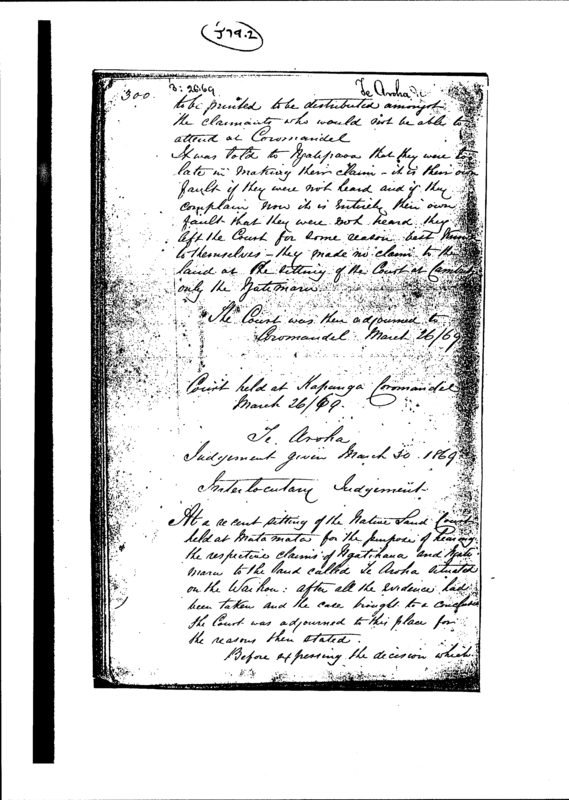 J79.2
300
3: 26.69
Te Aroha
to be printed to be distributed amongst
the claimants who would not be able to
attend at Coromandel
It was told to Ngatipaoa that they were too
late in making their claim – it is their own
fault if they were not heard and if they
complain now it is entirely their own
fault that they were not heard they
left the Court for some reason best known
to themselves – they made no claim to the
land at the sitting of the Court at
only the Ngatimaru
The Court was then adjourned to
Coromandel March 26/69
Court held at Kapunga Coromandel
March 26/69.
Te Aroha
Judgement given March 30 1869
Interlocutary Judgement
At a recent sitting of the Native Land Court
held at Matamata for the purpose of hearing
the respective claims of Ngatihaua and Ngati
maru to the land called Te Aroha situated
on the Waihou: after all the evidence had
been taken and the case brought to a conclusion
the Court was adjourned to this place for
the reasons then stated.
Before expressing the decision which